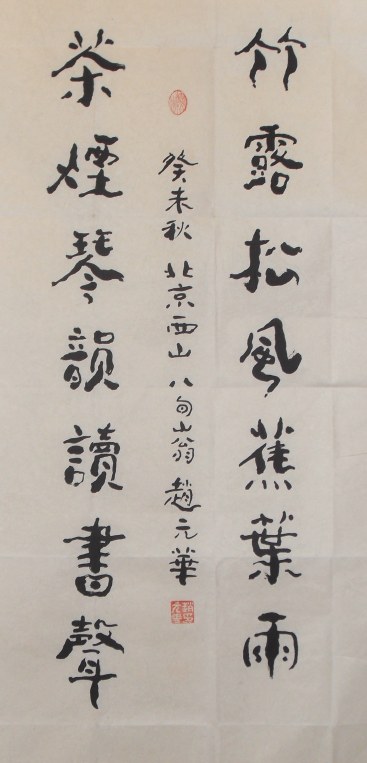 竹露松風蕉葉雨
茶煙琴韻讀書聲
癸未秋 北京西山 八旬山翁 趙元華